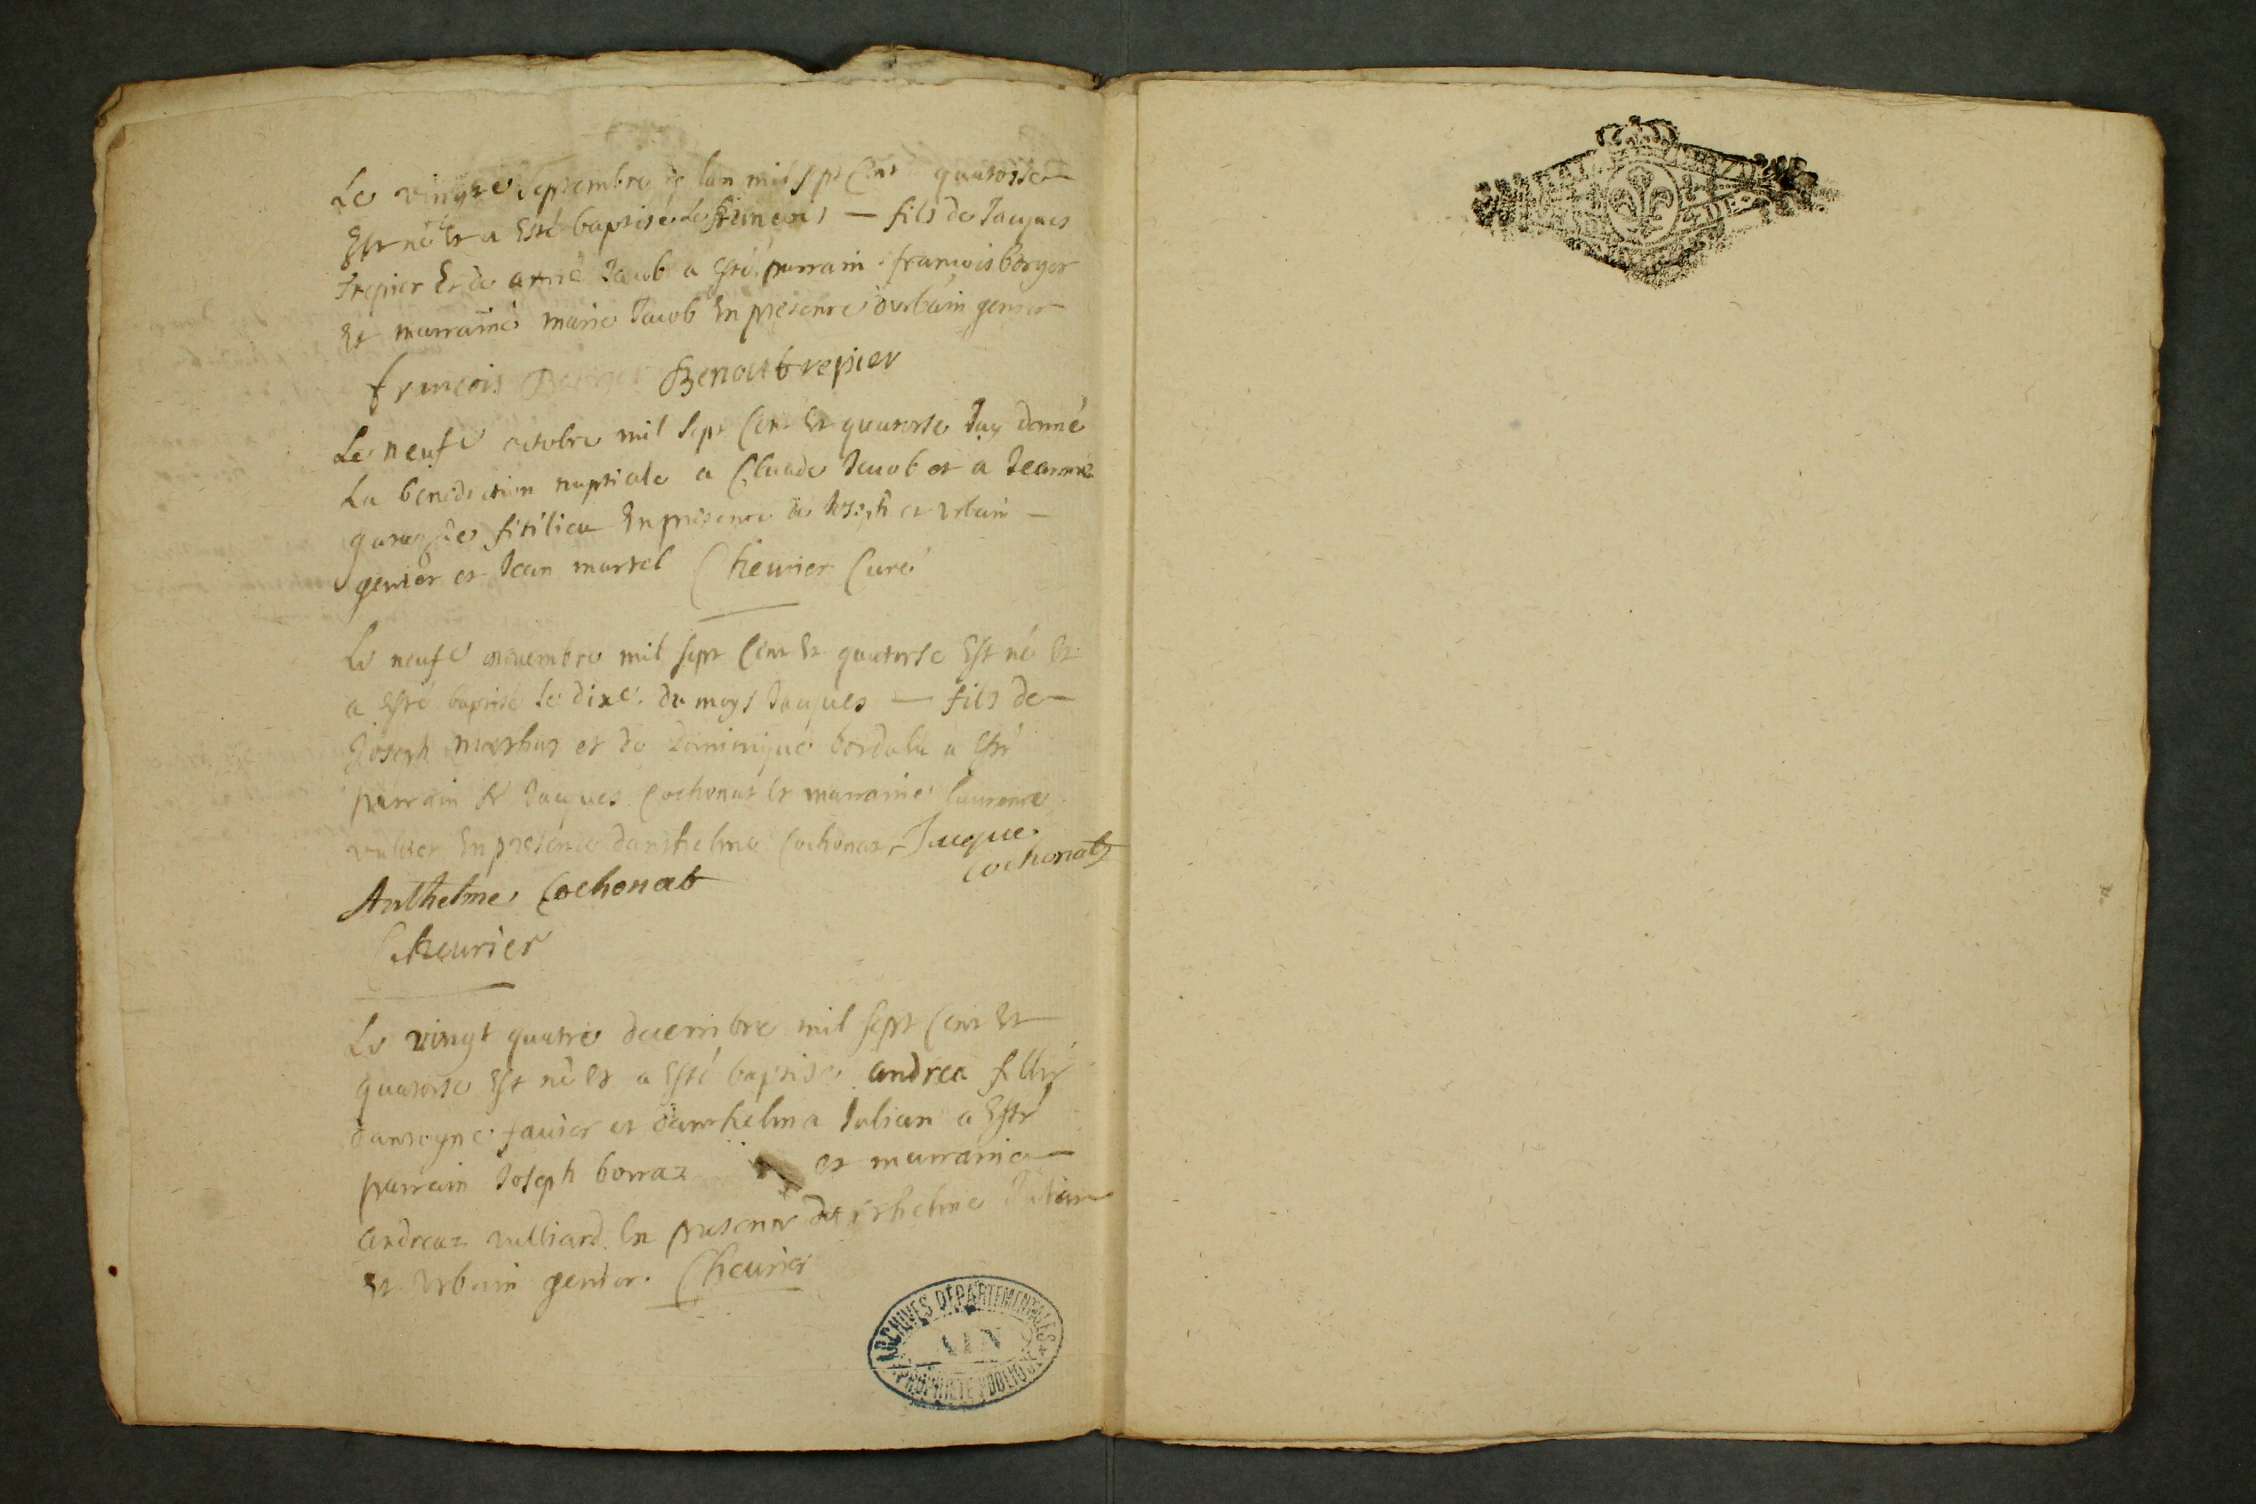 Le vingte septembre de lan mil sept Cent quatorse
Est né Et a Esté baptisé – fils de Jacques
trepier Et de anne Jacob a Esté parrain francois berger
Et marraine marie Jacob En presence durbain genier
francois Berger Benoit trepier
Le neufe octobre mil sept Cent Et quatorse Jay donné
La benediction nuptiale a Claude Jacob et a Jeanne
fitilieu En presence de Joseph et urbain –
genier et Jean martel Cheurier Curé
Le neufe novembre mil sept Cent Et quatorse Est né Et
a Esté baptisé le dixe. du moys Jacques – fils de –
Joseph et de Dominique a Esté
parrain Jacques Cochonat Et marraine laurence
En presence danthelme Cochonat Jacque
Cochonat
Anthelme Cochonat
Cheurier
Le vingt quatre decembre mil sept Cent Et
quatorse Est né Et a Esté baptisé andrea fille
dantoyne et danthelma Julian a Esté
parrain Joseph borraz et marraine
andreaz vulliard En presence danthelme Julian
Et urbain genier. Cheurier
ARCHIVES DÉPARTEMENTALES
AIN
PROPRIÉTÉ PUBLIQUE